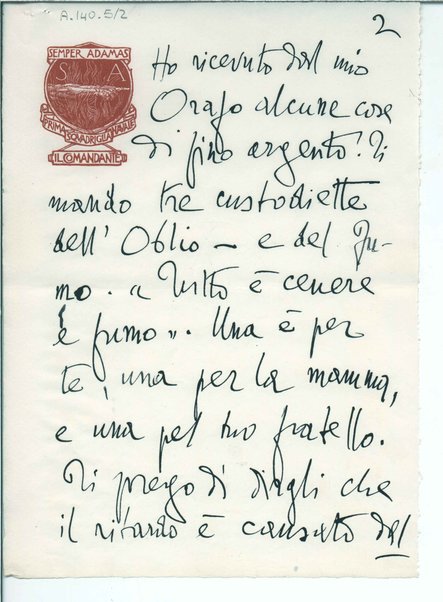 A.140.5/2
2
SEMPER ADAMAS
S A
PRIMA SQUADRIGLIA NAVALE
IL COMANDANTE
Ho ricevuto dal mio
Orafo alcune cose
di fino argento. Ti
mando tre custodiette
dell' Oblio – e del Fu-
mo. « Tutto è cenere
e fumo ». Una è per
te, una per la mamma,
e una pel tuo fratello.
Ti prego di dirgli che
il ritardo è causato dal